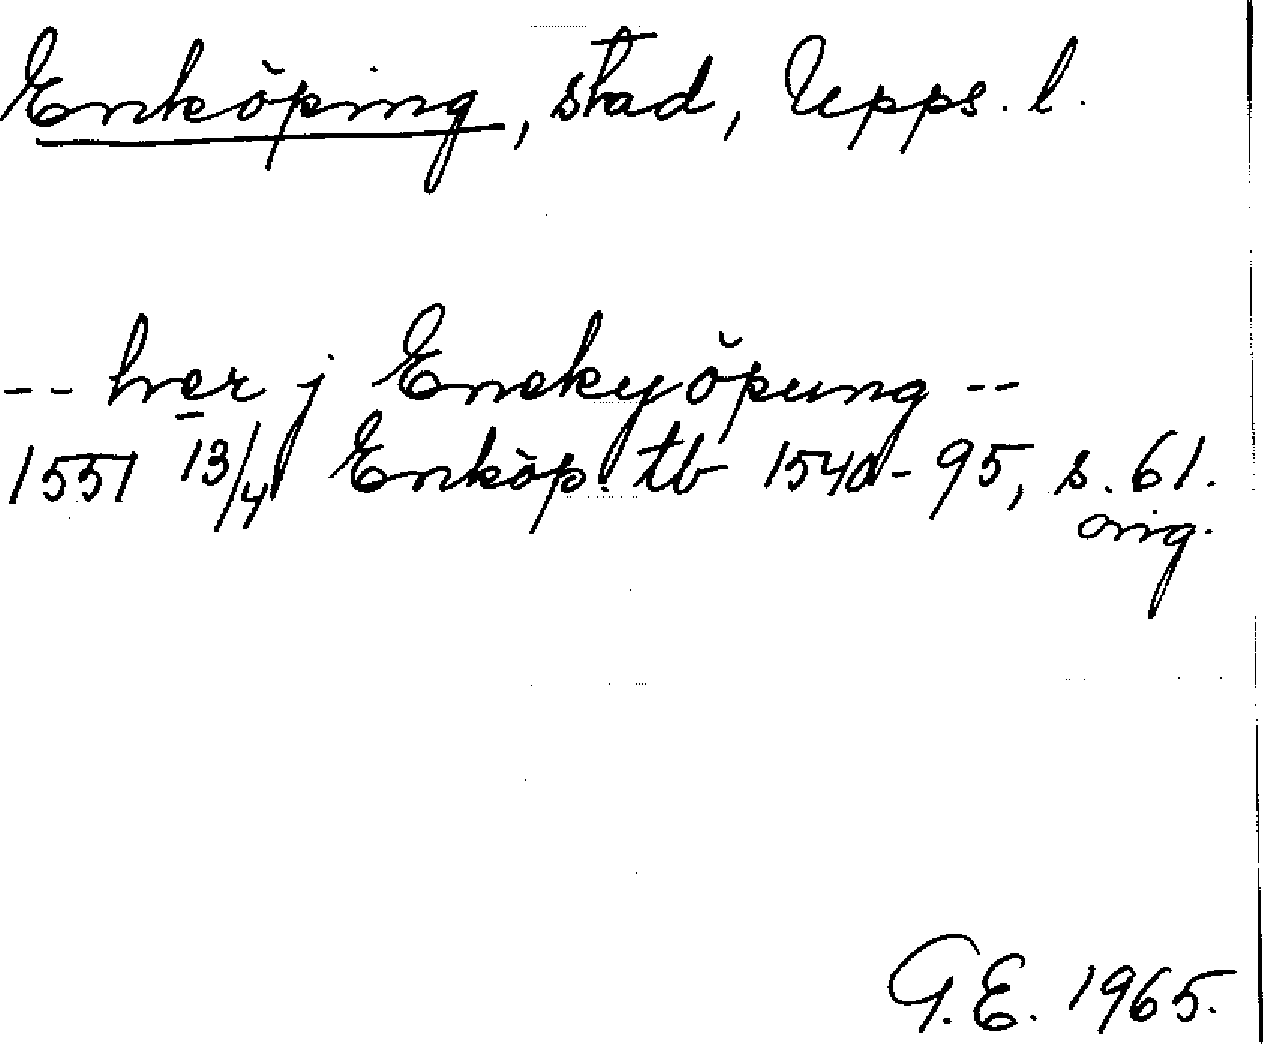 Enköping, stad, Upps. l.
-- hver j Enekyöpung --
1551 13/4 Enköp. tb 1540-95, s. 61.
orig.
G.E. 1965.